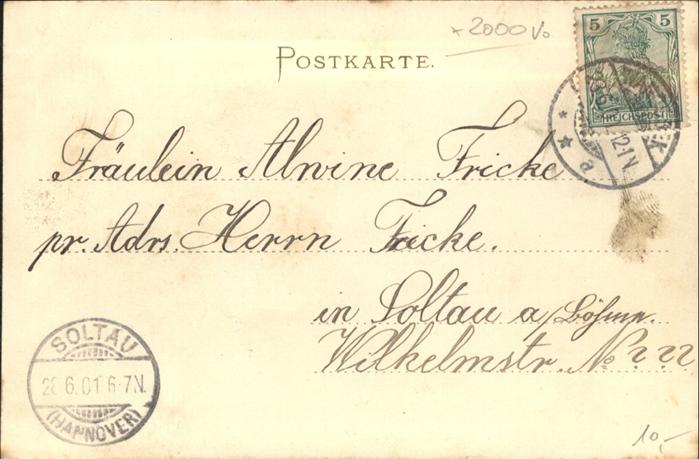 x 2000 Vo
5 5
POSTKARTE.
REICHSPOST
12-1N.
a
Fräulein Alwine Fricke
pr. Adrs. Herrn Fricke.
in Soltau a/Böhme.
Wilhelmstr. No ? 22
SOLTAU
28.6.01.6-7N.
(HANNOVER)
10,-